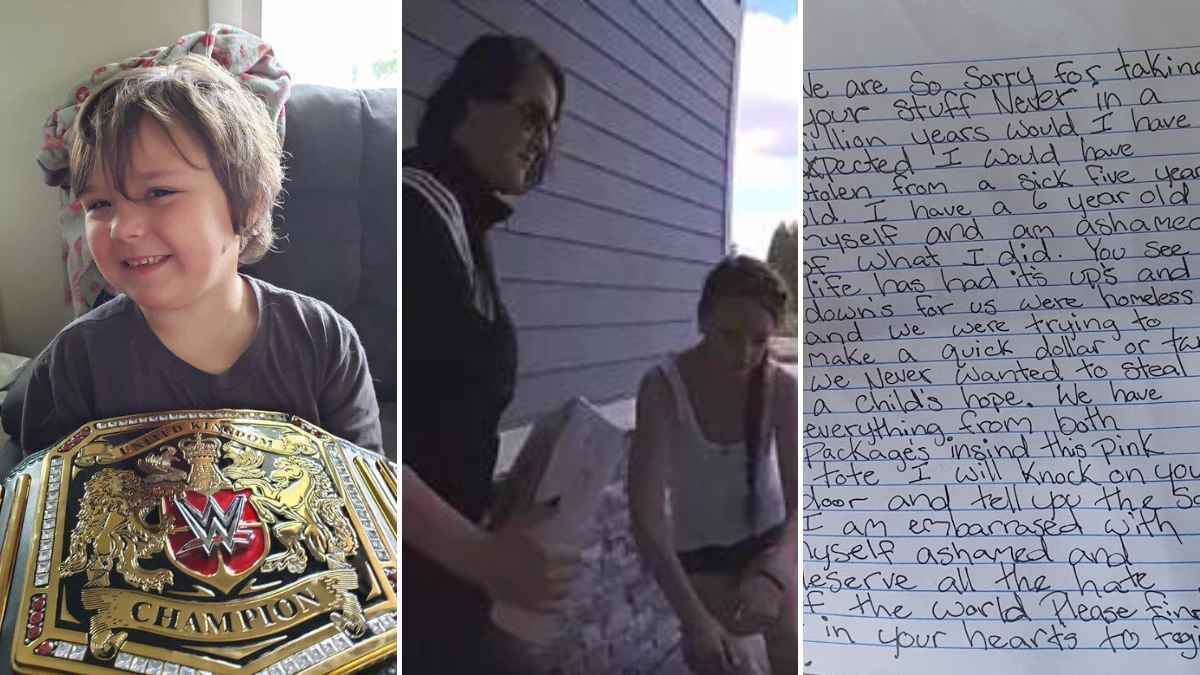 UNITED KINGDOM
W
CHAMPION
e are So Sorry for taking
your Stuff Never in a
illion years would I have
xpected I would have
stolen from a sick five year
ld. I have a 6 year old
myself and am ashamed
of what I did. You see
life has had it's up's and
down's for us were homeless
and we were trying to
make a quick dollar or
we Never wanted to Steal
a child's hope. We have
everything from both
Packages insind this Pink
tote I will knock on you
door and tell you the So
I am embarrased with
myself ashamed and
eserve all the hate
f the world Please Fin
in your hearts to